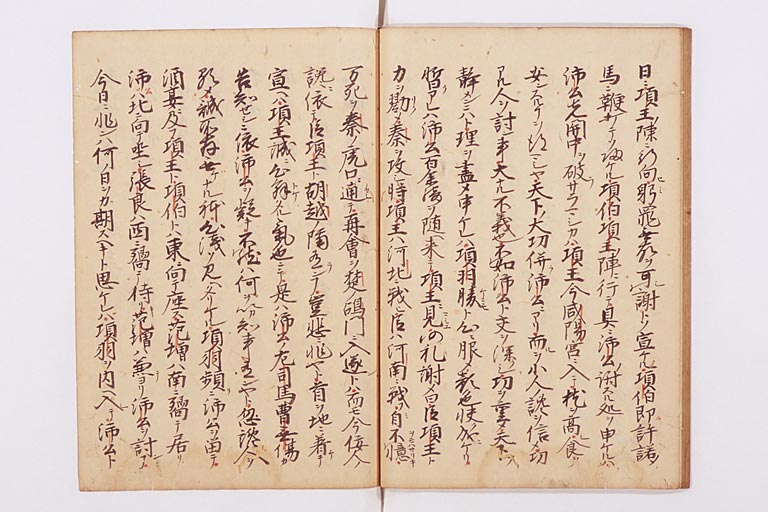 日ニ項王ノ陣ニ行向躬罪無ヲ可謝トソ宣ケル項伯即許諾ノ
馬ニ鞭打テ帰ケル項伯項王ノ陣ニ行テ具ニ沛公謝スル処ヲ申ケルハ
沛公先関中ヲ破サラマシカハ項王今咸陽宮ニ入テ枕ヲ高食ヲ
安セル事ヲ得マシヤ天下ノ大切併沛公ニアリ而ヲ小人讒ヲ信功
アル人ヲ討事大ナル不義也不如沛公ト交ヲ深シ功ヲ重天下ヲ
静メンニハト理ヲ盡メ申ケレハ項羽勝ト心服シ顔色快成ケリ
暫アレハ沛公百余騎ヲ随来テ項王ニ見仍礼謝曰臣項王ト
力ヲ勠秦ヲ攻シ時項王ハ河北ニ戦臣ハ河南ニ戦自不憶
万死ヲ秦ノ虎口ニ遁テ再會ヲ楚ノ鴻門ニ入遂トハ而モ今佞人
讒ニ依テ臣項王ト胡越ノ隔有ン事豈悲非ヤト首ヲ地ニ着テ
宣ヘハ項王誠ニ心解タル氣色ニテ是ハ沛公ノ左司馬曹無傷カ
告知セシニ依沛公ヲ疑キ不然ハ何ヲ以分知事有ンヤト忽讒人ヲ
顕メ誠ニ所存無ケナル躰心浅ク見ヘタリケル項羽頻ニ沛公ヲ留テ
酒宴ニ及フ項王ト項伯トハ東ニ向テ座ス范増ハ南ニ嚮テ居リ
沛公ハ北ニ向テ坐シ張良ハ西ニ嚮テ侍リ范増ハ兼ヨリ沛公ヲ討ン事
今日ニ非ハ何ノ日ヲカ期スヘキト思ケレハ項羽ヲ内ヘ入テ沛公ト